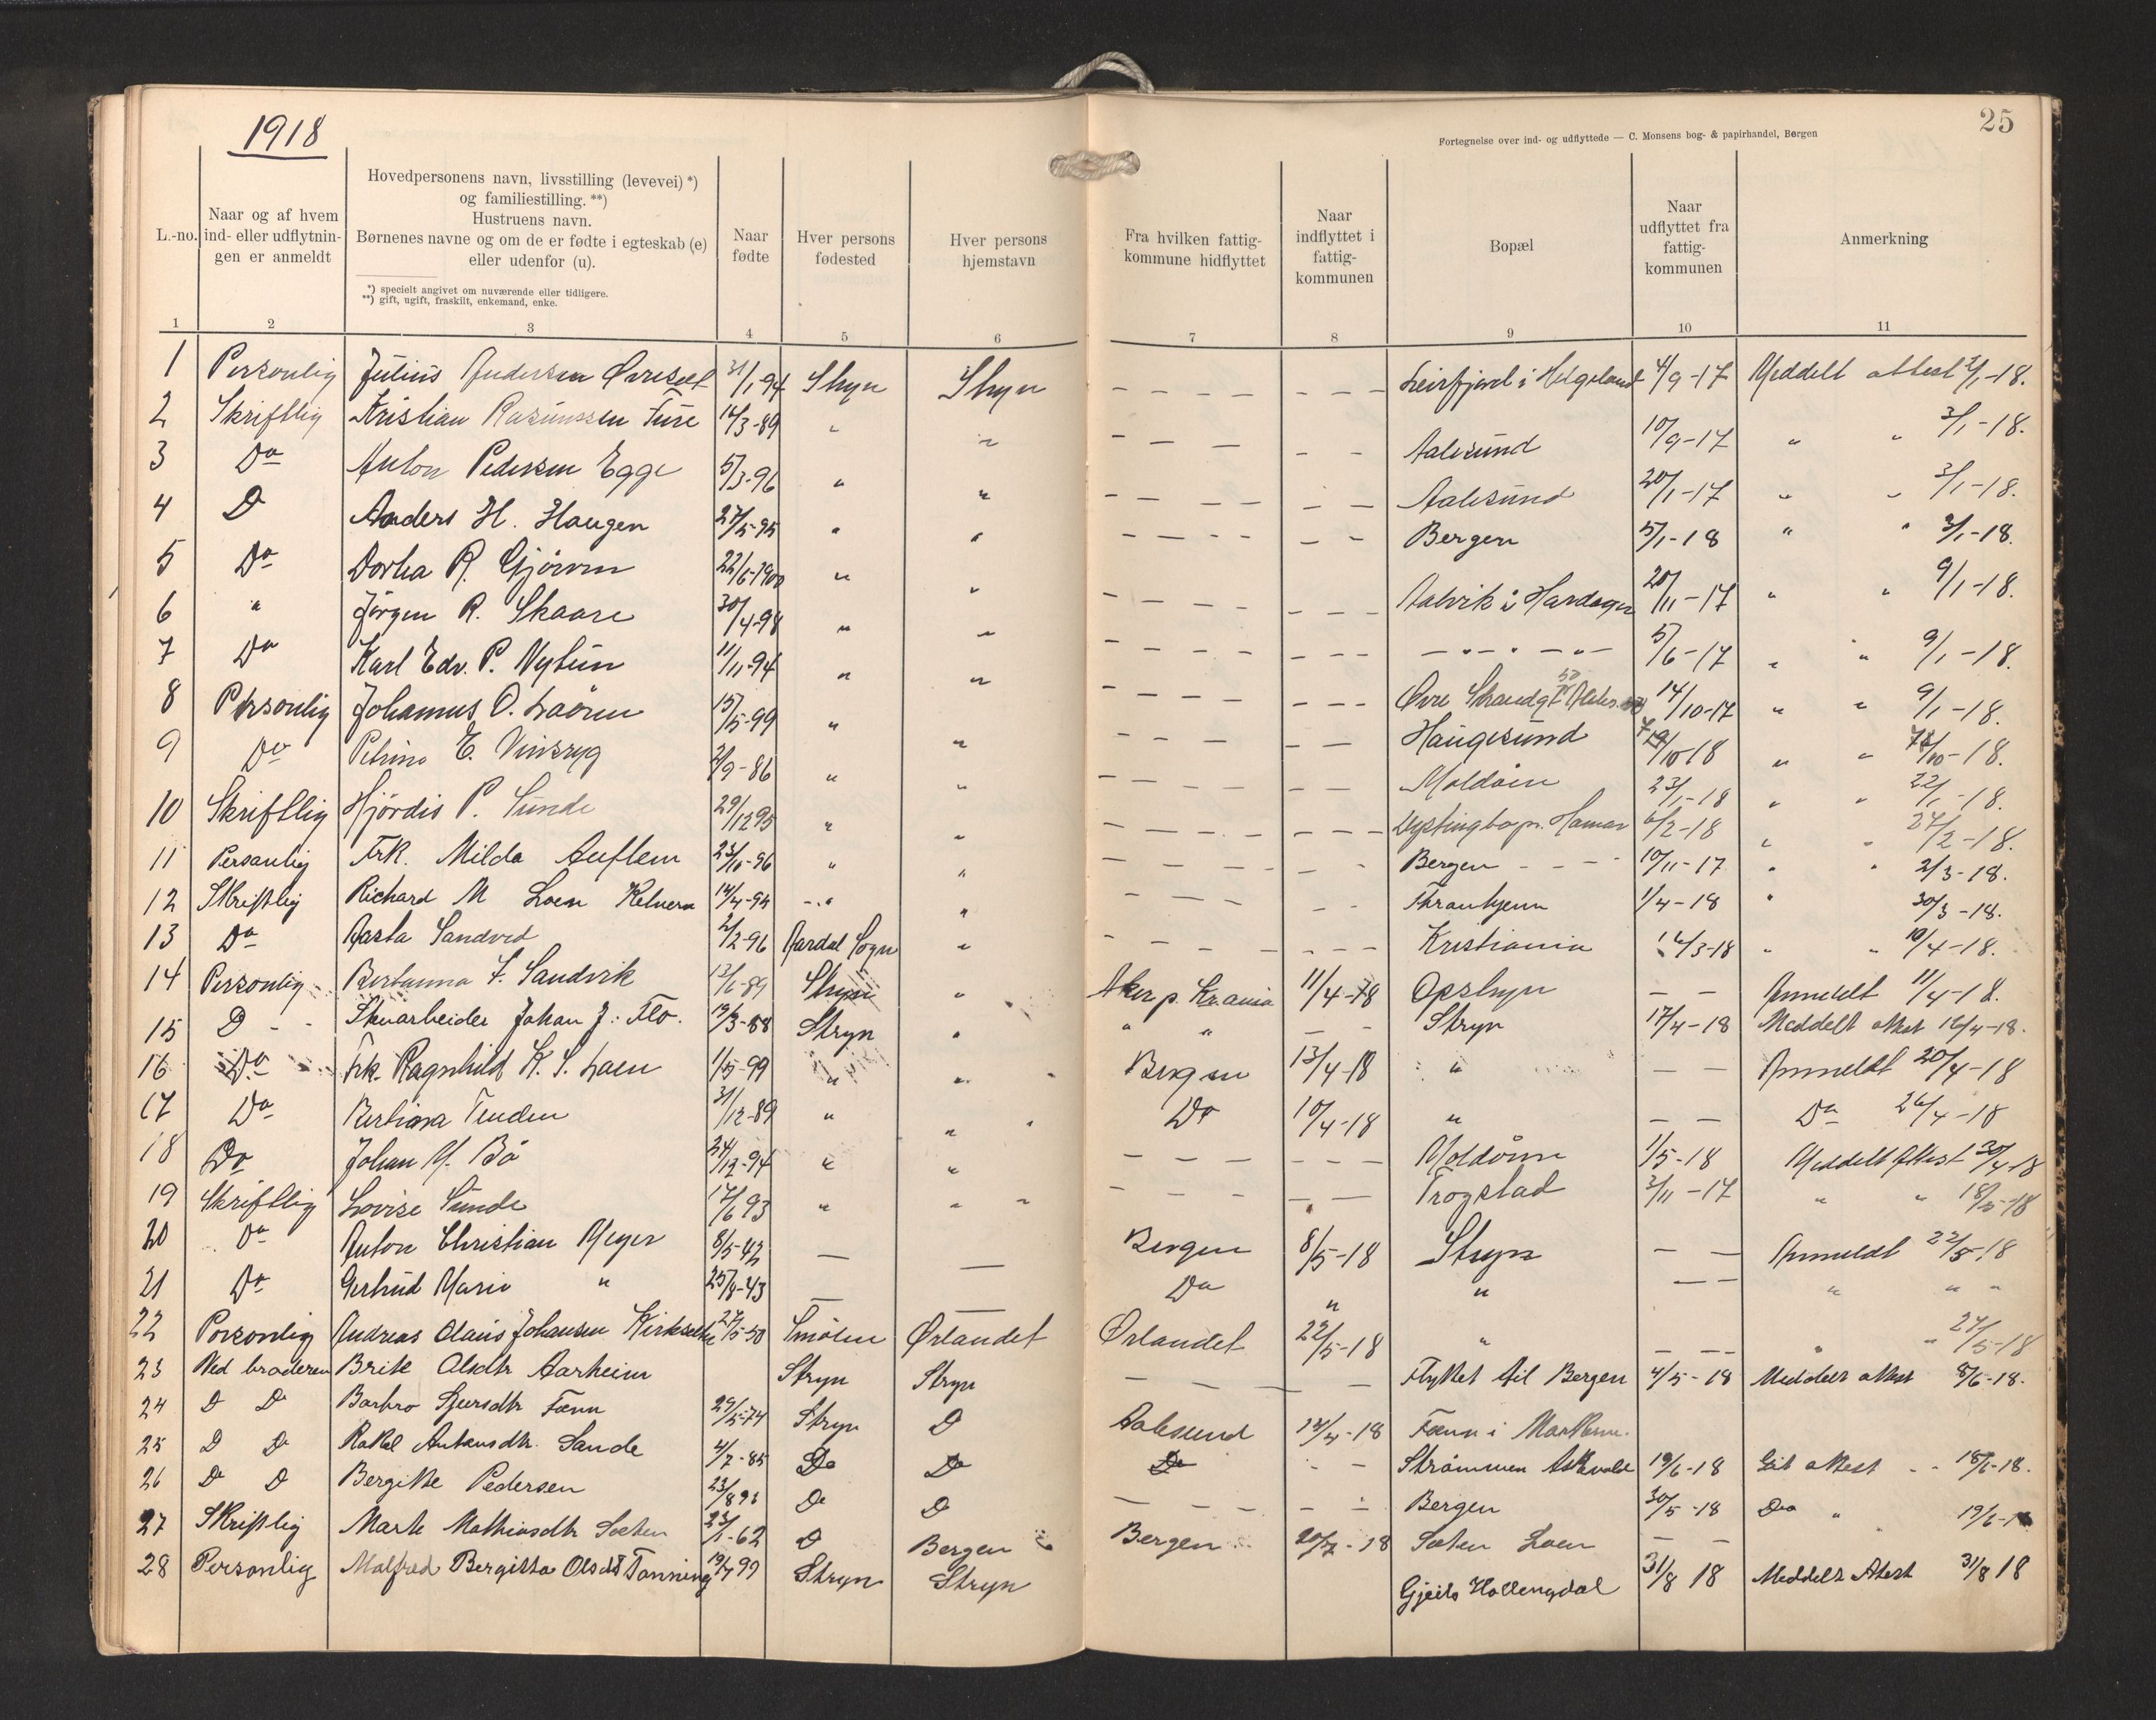 1918
25
Fortegnelse over ind- og udflyttede — C. Monsens bog- & papirhandel, Bergen
L.-no.
Naar og af hvem
ind- eller udflytnin-
gen er anmeldt
Hovedpersonens navn, livsstilling (levevei) *)
og familiestilling. **)
Hustruens navn.
Børnenes navne og om de er fødte i egteskab (e)
eller udenfor (u).
*) specielt angivet om nuværende eller tidligere.
**) gift, ugift, fraskilt, enkemand, enke.
Naar
fødte
Hver persons
fødested
Hver persons
hjemstavn
Fra hvilken fattig-
kommune hidflyttet
Naar
indflyttet i
fattig-
kommunen
Bopæl
Naar
udflyttet fra
fattig-
kommunen
Anmerkning
1 2 3 4 5 6 7 8 9 10 11
1 Personlig Julius Andersen 31/1 94 Stryn Stryn – – – – – – – Leirfjord i Helgeland 4/9-17 Meddelt attest 2/1-18.
2 Skriftlig Kristian Rasmussen 14/3-89 " " – – – – – Aalesund 10/9-17 " " 3/1-18.
3 Do Anton Pedersen Egge 5/3-96 " " – – – – – – Aalesund 20/1-17 " " 3/1-18.
4 D Anders H. Haugen 27/5-95 " " – – – – – – Bergen 5/1-18 " " 3/1-18.
5 Do Dortea R. Gjørven 22/6-1900 " " – – – – – – – Aalvik i Hardanger 20/11-17 " " 9/1-18.
6 " Jørgen R. Skaare 30/4-98 " " – – – – – – – – " – " – " – 5/6-17 " " 9/1-18.
7 Do Karl Edv. P. Nytun 11/11-94 " " – – – – – – – Øvre Strandgt 14/10-17 " " 9/1-18.
8 Personlig Johannes O. Loøren 15/5-99 " " – – – – – – Haugesund " "
9 Do Petrine E. Vinsryg 2/9-86 " " – – Moldøen 23/1-18 " " 22/1-18.
10 Skriftlig Hjördis P. Sunde 29/12 95 " " – – – – – – – – Hamar 6/2-18 " " 27/2-18.
11 Personlig Frk. Milda Auflem 23/10-96 " " – – – – – – Bergen – – – 10/11-17 " " 2/3-18.
12 Skriftlig Richard M Loen Kelner 14/4-94 – " " – – – – – – Thronhjem 1/4-18 " 30/3-18.
13 Do Aasta Sandvid 2/2-96 Aardal Sogn " – – – – – – – – Kristiania 12/3-18 " " 10/4-18.
14 Personlig F. Sandvik Stryn " Aker p. Krania 11/4-18 Opstryn – – Anmeldt 11/4-18.
15 D – – Skoarbeider Johan J: Flo. 19/3-88 Stryn " " " – – Stryn 17/4-18 Meddelt attest 16/4-18.
16 Do Frk. Ragnhild K. S. Loen 1/5-99 " " Bergen 13/4-18 " – – Anmeldt 20/4-18
17 Do Tenden 31/12-89 " " Do 10/4-18 " – – Do 26/4-18
18 Do Johan M. Bö 24/12-94 " " – – – – – – – Moldøen 1/5-18 Meddelt Attest 30/4-18
19 Skriftlig Lovise Sunde 17/6 93 " " – – – – – – Trogstad 3/11-17 " " 18/5-18
20 Do Anton Christian Meyer 8/5-42 — — Bergen 8/5-18 Stryn – – Anmeldt 22/5-18
21 Do Gertrud Marie " 25/8-43 — — Do " " – – " " "
22 Personlig Andreas Olaus Johansen 27/5-50 Smølen Ørlandet Ørlandet 22/5-18 " – – – " " 27/5-18
23 Ved broderen Brite Olsdtr Aarheim Stryn Stryn – – – – Flyttet til Bergen 4/5-18 Meddelt attest 8/6-18.
24 D Do Barbro Sjursdtr Fænn 29/5-74 Stryn D Aalesund 14/4-18 Fænn i Markene.
25 D Do Rakel Antonsdtr. Sande 4/7-85 Do Do Do – – Strömmen Askvold 19/6-18 Git attest – – 18/6-18.
26 Do D Bergitte Pedersen 23/8 93 Do D – – – – – – Bergen 30/5-18 Do "
27 Skriftlig Marte Mathiasdtr Sæten 23/1-62 D Bergen Bergen 20/7-18 Sæten Loen – –
28 Personlig Malfred Bergitta Olsdt Tonning 19/7 99 Stryn Stryn Gjeilo Hallingdal 31/8 18 Meddelt Atest 31/8 18